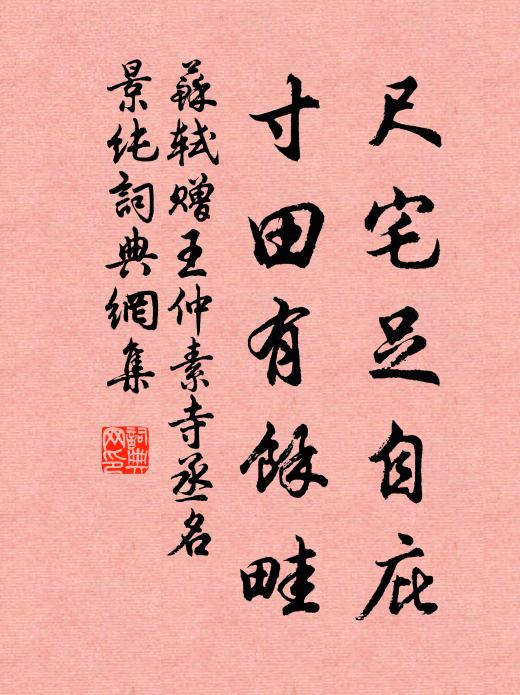 尺宅足自庇
寸田有餘畦
蘇軾贈王仲素寺丞名
景純詞典網集
詞典
网印